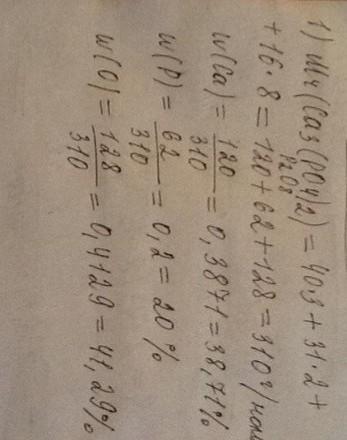 1) Mr(Ca3(PO4)2) = 40·3 + 31·2 +
P2O8
+ 16·8 = 120 + 62 + 128 = 310 г/мол
w(Ca) = 120/310 = 0,3871 = 38,71%
w(P) = 62/310 = 0,2 = 20%
w(O) = 128/310 = 0,4129 = 41,29%